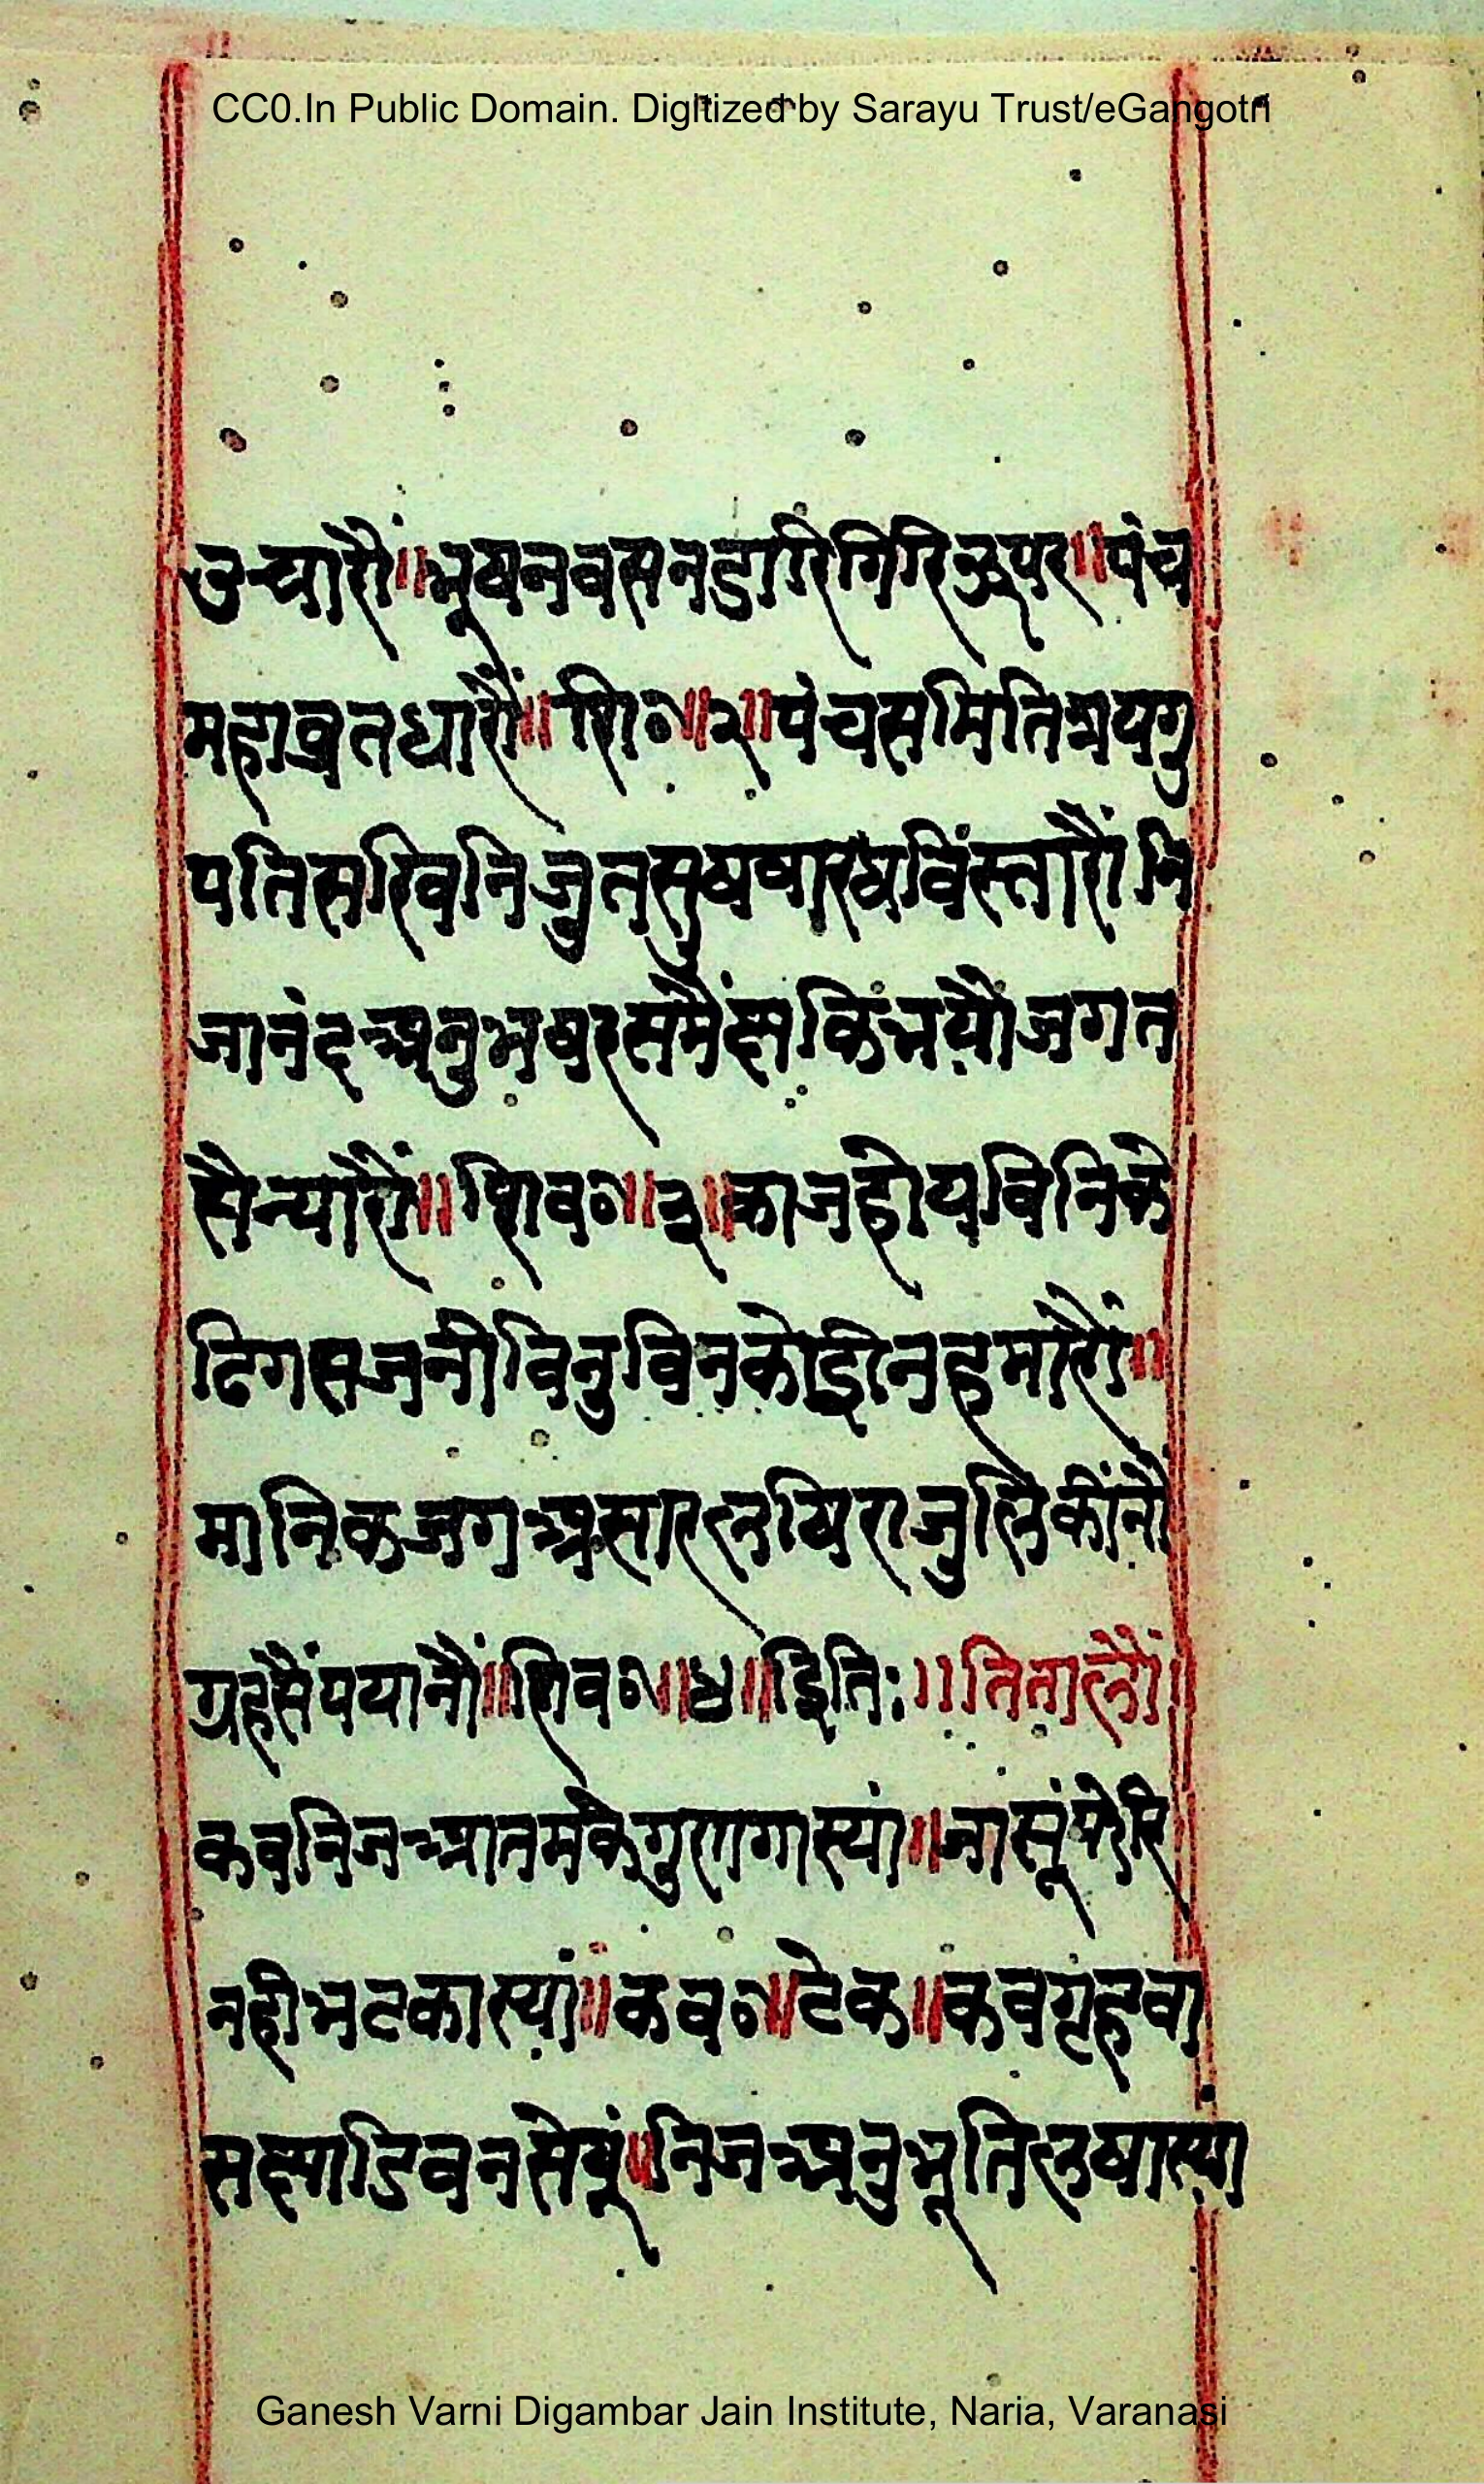 CC0.In Public Domain. Digitized by Sarayu Trust/eGangotri
उचारौं॥भूषनवसनडारिगिरिऊपर॥पंच
महाव्रतधारौं॥शि०॥२॥पंचसमितित्रयगु
पतिसरिवनिजुतसुष विस्तारौं नि
जानंदअनुभवरसमैं जगत
सैन्यारौं॥शिव०॥३॥काजहोयविनिके
ढिगसजनीविनुविनकोइीनहमारौं॥
मानिकजगअसारलषिराजुलिकींनौं
ग्रहसैंपयानौं॥शिव०॥४॥इिति:॥तितालौं॥
कवनिजआतमकेगुणगास्यां॥जासूंफेरि
नहीभटकास्यां॥कव०॥टेक॥कवगृहवा
सछाडिवनसेवूं॥निजअनुभूतिलषास्यां
Ganesh Varni Digambar Jain Institute, Naria, Varanasi